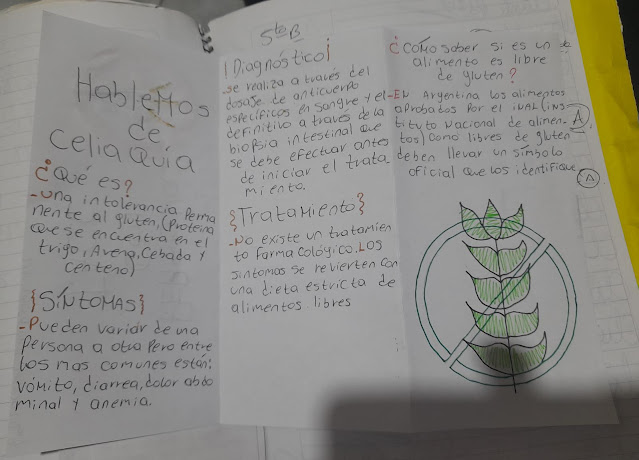 Hablemos
de
celiaquía
¿Qué es?
-Una intolerancia perma
nente al gluten, (Proteína
que se encuentra en el
trigo, Avena, Cebada y
centeno)
{SÍNTOMAS}
-Pueden variar de una
persona a otra pero entre
los mas comunes están:
vómito, diarrea, dolor abdo
minal y anemia.
5to B
¡Diagnóstico!
-se realiza a través del
dosaje de anticuerpo
específicos en sangre y el
definitivo a través de la
biopsia intestinal que
se debe efectuar antes
de iniciar el trata
miento.
{Tratamiento}
-No existe un tratamien
to Farmacológico. Los
síntomas se revierten con
una dieta estricta de
alimentos libres
¿Cómo saber si es un
alimento es libre
de gluten?
-En Argentina los alimentos
aprobados por el INAL (ins
tituto Nacional de alimen-
tos) como libres de gluten
deben llevar un símbolo
oficial que los identifique